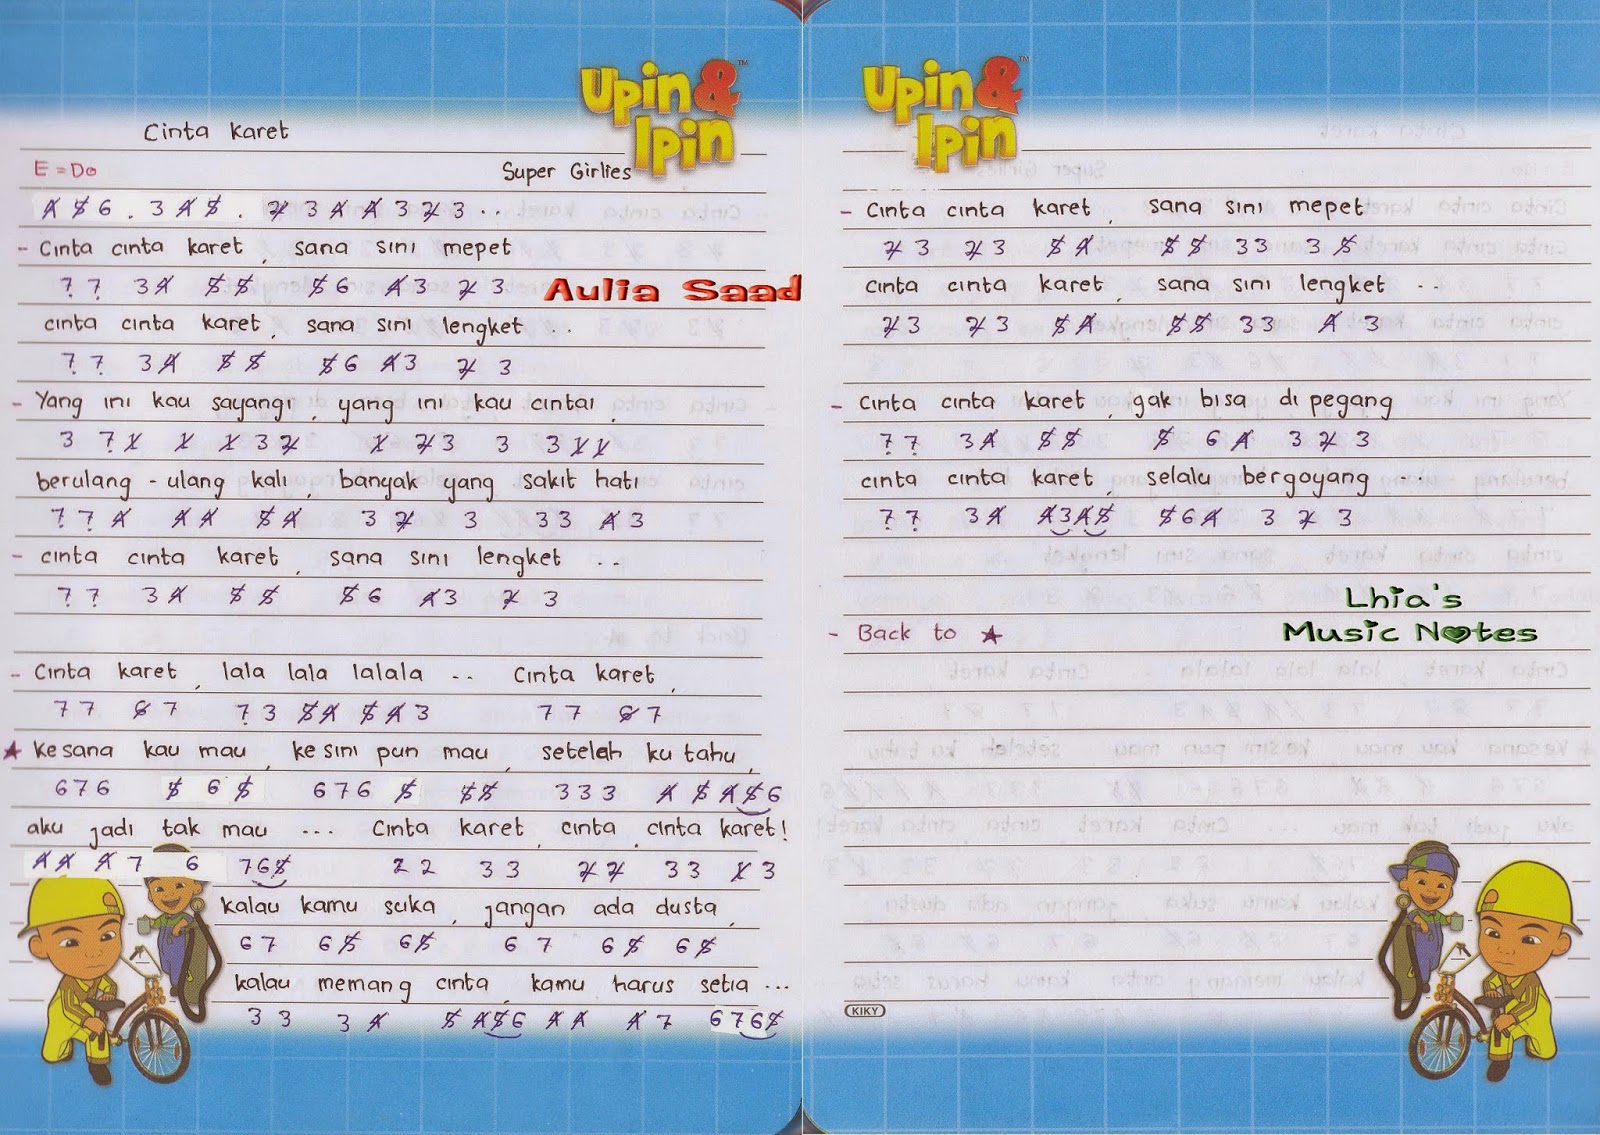 Upin & Ipin ™
Cinta Karet
E = Do Super Girlies
4̸ 5̸ 6 . 3 4̸ 5̸ . 2̸ 3 4̸ 4̸ 3 2̸ 3 . . .
- Cinta cinta karet, sana sini mepet
7̣ 7̣ 3 4̸ 5̸ 5̸ 5̸ 6 4̸ 3 2̸ 3
Aulia Saad
cinta cinta karet, sana sini lengket ..
7̣ 7̣ 3 4̸ 5̸ 5̸ 5̸ 6 4̸ 3 2̸ 3
- Yang ini kau sayangi, yang ini kau cintai,
3 7 1̸ 1̸ 1̸ 3 2̸ 1̸ 2̸ 3 3 3 1̸ 1̸
berulang - ulang kali, banyak yang sakit hati
7̣ 7̣ 4̸ 4̸ 4̸ 5̸ 4̸ 3 2̸ 3 3 3 4̸ 3
- cinta cinta karet, sana sini lengket ..
7̣ 7̣ 3 4̸ 5̸ 5̸ 5̸ 6 4̸ 3 2̸ 3
- Cinta karet, lala lala lalala .. Cinta karet,
7 7 6̸ 7 7̣ 3 5̸ 4̸ 5̸ 4̸ 3 7 7 6̸ 7
★ Ke sana kau mau, ke sini pun mau, setelah ku tahu,
6 7 6 5̸ 6 5̸ 6 7 6 5̸ 5̸ 5̸ 3 3 3 4̸ 5̸ 4̸ 5̸ 6
aku jadi tak mau ... Cinta karet, cinta, cinta karet!
4̸ 4̸ 4̸ 7 6 7 6 5̸ 2̸ 2 3 3 2̸ 2̸ 3 3 1̸ 3
kalau kamu suka, jangan ada dusta,
6 7 6 5̸ 6 5̸ 6 7 6 5̸ 6 5̸
kalau memang cinta, kamu harus setia ...
3 3 3 4̸ 5̸ 4̸ 5̸ 6 4̸ 4̸ 4̸ 7 6 7 6 5̸
Upin & Ipin ™
- Cinta cinta karet, sana sini mepet
2̸ 3 2̸ 3 5̸ 4̸ 5̸ 5̸ 3 3 3 5̸
cinta cinta karet, sana sini lengket ..
2̸ 3 2̸ 3 5̸ 4̸ 5̸ 5̸ 3 3 4̸ 3
- Cinta cinta karet, gak bisa di pegang
7̣ 7̣ 3 4̸ 5̸ 5̸ 5̸ 6 4̸ 3 2̸ 3
cinta cinta karet, selalu bergoyang ...
7̣ 7̣ 3 4̸ 4̸ 3 4̸ 5̸ 5̸ 6 4̸ 3 2̸ 3
Lhia's
Music Notes
- Back to ★
KIKY